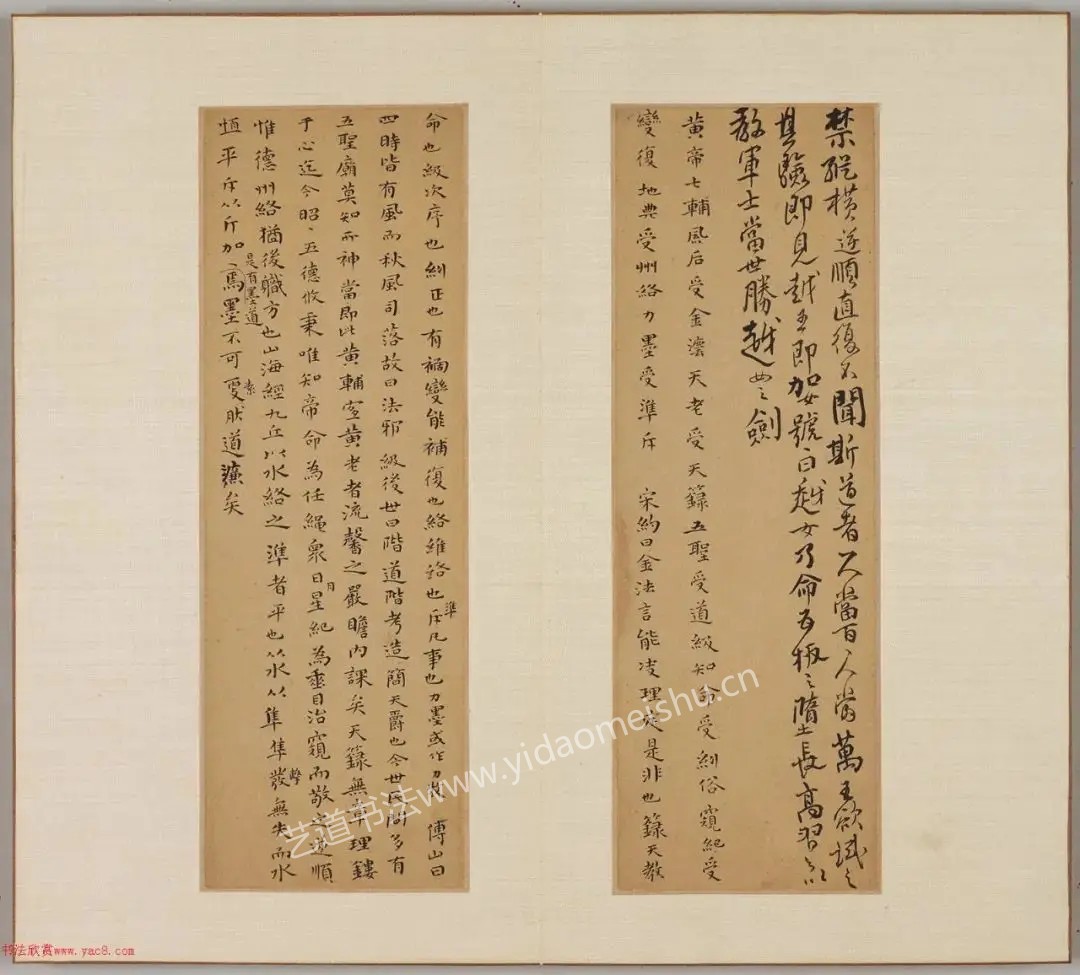 禁縱橫逆順直復不聞斯道者一人當百百人當萬王欲試之
其驗即見越王即加女號曰越女乃命五板之隋長高習之以
教軍士當世勝越女之劍
黃帝七輔風后受金法天老受天籙五聖受道級知命受糾俗窺紀受
變復地典受州絡力墨受準斥 宋約曰金法言能決理是非也籙天教
命也級次序也糾正也有禍變能補復也絡維絡也準斥凡事也力墨或作力牧 傅山曰
四時皆有風而秋風司落故曰法邪級後世曰階道階考造簡天爵也今世民間多有
五聖廟莫知所神當即此黃輔寔黃老者流馨之嚴瞻內課矣天籙無章理鏤
于心迄今昭〻五德攸秉唯知帝命為任繩衆日月星紀為垂目治窺而敬之逆順
惟德州絡猶後職方也山海經九丘以水絡之準者平也从水从隼隼擊發無失而水
恒平斥从斤加丶焉是有墨道墨不可變素朕道㢘矣
艺道书法www.yidaomeishu.cn
书法欣赏www.yac8.com